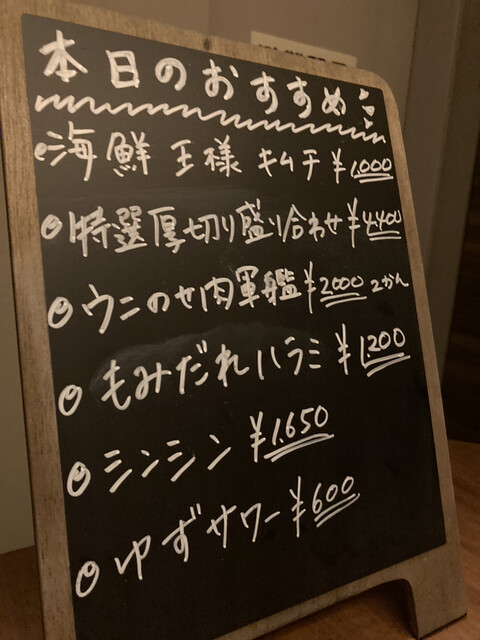 本日のおすすめ
海鮮 王様 キムチ ¥1,000
特選厚切り盛り合わせ ¥4,400
ウニのせ肉軍艦 ¥2000 2かん
もみだれハラミ ¥1,200
シンシン ¥1.650
ゆずサワー ¥600